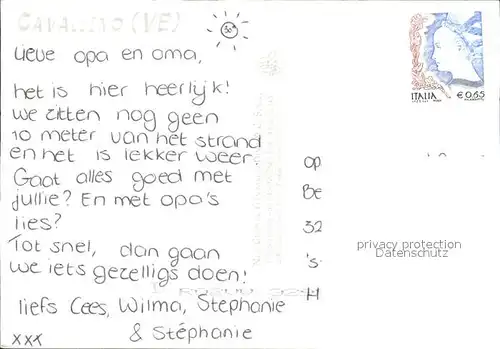 CAVALLINO (VE)
30°
Lieve opa en oma,
het is hier heerlijk!
we zitten nog geen
10 meter van het strand
en het is lekker weer.
Gaat alles goed met
jullie? En met opa's
lies?
Tot snel, dan gaan
we iets gezelligs doen!
liefs Cees, Wilma, Stephanie
& Stéphanie
xxx
ITALIA € 0,65
op
Be
32
's
H
privacy protection
Datenschutz